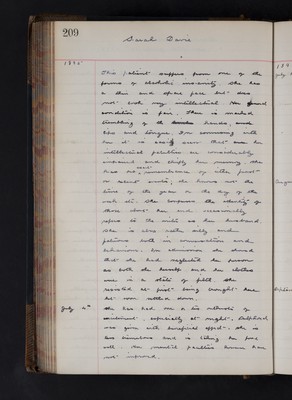 209
Sarah Davis
1895
This patient suffers from one of the
forms of alcoholic insanity. She has
a thin and spare face but does
not look very intellectual. Her
condition is fair. There is marked
trembling of the hands and
lips and tongue. In conversing with
her it is easily seen that her
intellectual faculties are considerably
and chiefly her memory. She
has no remembrance of either past
or recent events; she knows not the
time of the year or the day of the
week etc. She confuses the identity of
those about her and occasionally
refers to the as her husband.
She is also rather silly and
both in conversation and
behaviour. Her admission
that she had neglected her person
as both she herself and her clothes
were in a state of filth. She
resisted at first being brought here
but soon settled down.
July 4th
She has had one or two attacks of
excitement, especially at night.
was given with beneficial effect. She is
less tremulous and is taking her food
well. Her mental faculties however have
not improved.